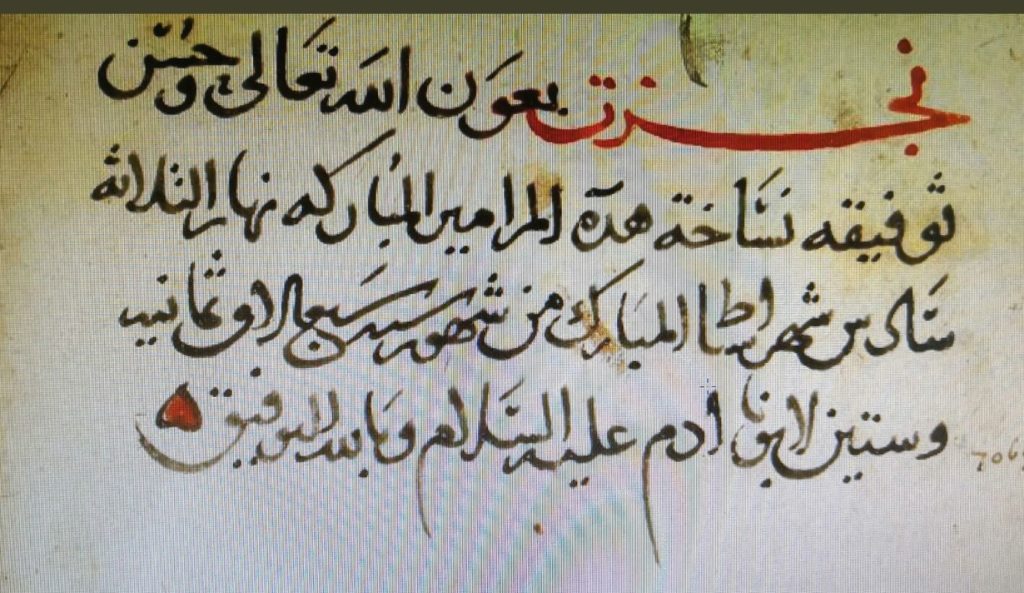 نجزت بعون الله تعالى وحسن
توفيقه نساخة هده المزامير المباركه نهار الثلاثه
سادس شهر المبارك من شهور سنه سبعالاف وثمانيه
وستين لابونا ادم عليه السلام وبالله التوفيق
706